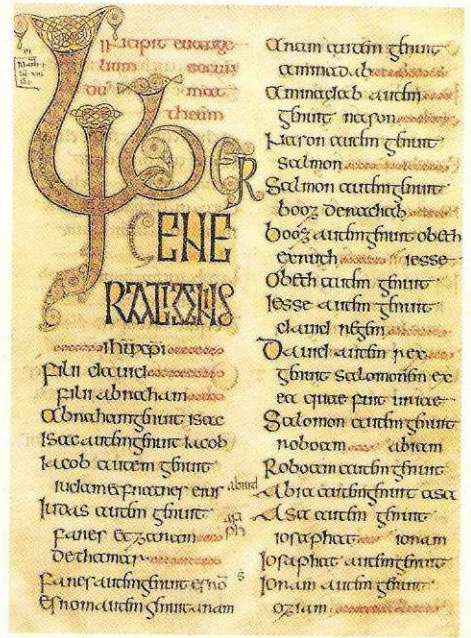 Incipit euange
lium secun
du mat
theum
Liber
GENE
RATIONIS
ihu xpi
filii dauid
filii abracham
Abracham genuit isac
Isac autem genuit iacob
Iacob autem genuit
iudam et fratres eius
Iudas autem genuit
fares et zaram
de thamar
Fares autem genuit esrō
esrom autem genuit aram
Aram autem genuit
aminadab
aminadab autem
genuit nason
Nason autem genuit
salmon
Salmon autem genuit
booz de rachab
Booz autem genuit obeth
ex ruth iesse
Obeth autem genuit
Iesse autem genuit
dauid regem
Dauid autem rex
genuit salomonem ex
ea quae fuit uriae
Salomon autem genuit
roboam abiam
Roboam autem genuit
Abia autem genuit asa
Asa autem genuit
iosaphat ioram
Iosaphat autem genuit
Ioram autem genuit
oziam